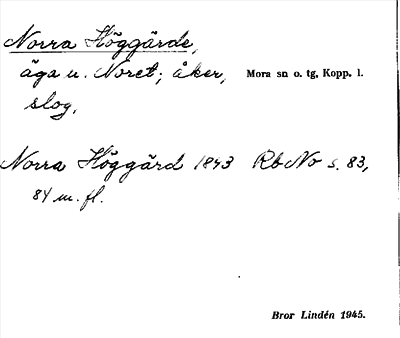 Norra Höggärde,
äga u. Noret; åker, Mora sn o. tg, Kopp. l.
slog.
Norra Höggärd 1843 Rb No s. 83,
84 m. fl.
Bror Lindén 1945.